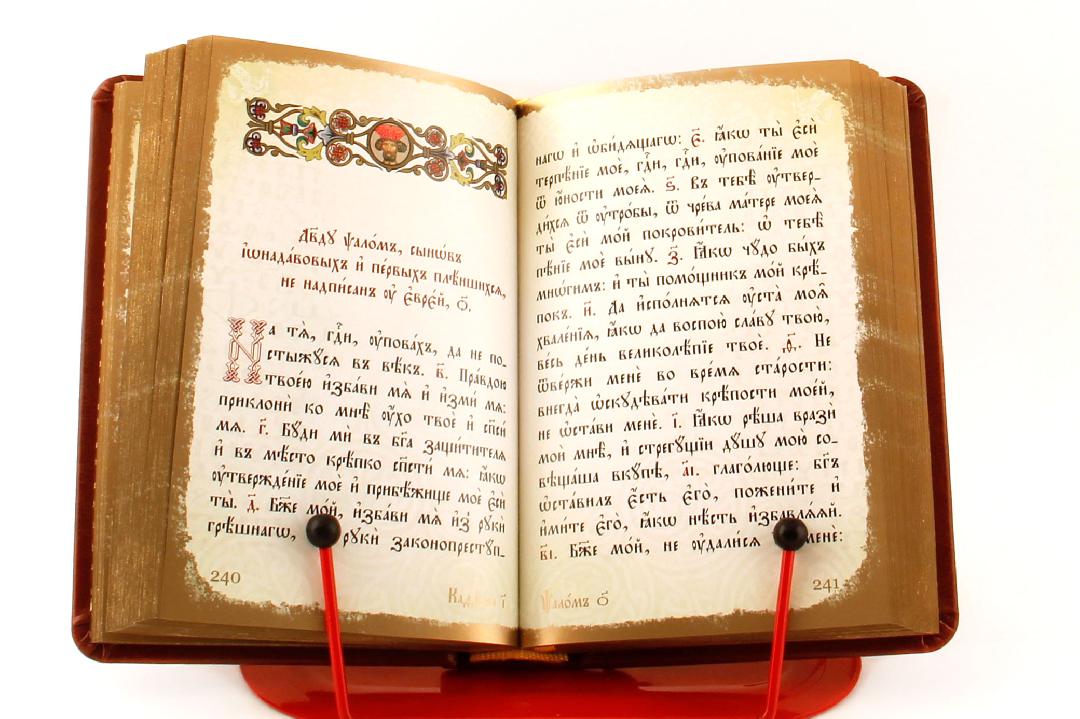 Давⷣꙋ ѱало́мъ, сынѡ́въ
і҆ѡнада́вовыхъ и҆ пе́рвыхъ плѣ́ншихсѧ,
не надпи́санъ ᲂу҆ є҆вре́й, ѻ҃.
На тѧ̀, гдⷭ҇и, ᲂу҆пова́хъ, да не по-
стыжꙋ́сѧ въ вѣ́къ. в҃. Пра́вдою
твоє́ю и҆зба́ви мѧ̀ и҆ и҆зми́ мѧ:
приклонѝ ко мнѣ̀ ᲂу҆́хо твоѐ и҆ сп҃сѝ
мѧ. г҃. Бꙋ́ди мѝ въ бг҃а защи́тителѧ
и҆ въ мѣ́сто крѣ́пко сп҃стѝ мѧ: ꙗ҆́кѡ
ᲂу҆твержде́нїе моѐ и҆ прибѣ́жище моѐ є҆сѝ
ты̀. д҃. Бж҃е мо́й, и҆зба́ви мѧ̀ и҆з̾ рꙋкѝ
грѣ́шнагѡ, рꙋкѝ законопрестꙋ́п-
240
Каѳі́сма і҃
нагѡ и҆ ѡ҆би́дѧщагѡ: є҃. ꙗ҆́кѡ ты̀ є҆сѝ
терпѣ́нїе моѐ, гдⷭ҇и, гдⷭ҇и, ᲂу҆пова́нїе моѐ
ѿ ю҆́ности моеѧ̀. ѕ҃. Въ тебѣ̀ ᲂу҆твер-
ди́хсѧ ѿ ᲂу҆тро́бы, ѿ чре́ва ма́тере моеѧ̀
ты̀ є҆сѝ мо́й покрови́тель: ѡ҆ тебѣ̀
пѣ́нїе моѐ вы́нꙋ. з҃. Ꙗ҆́кѡ чꙋ́до бы́хъ
мнѡ́гимъ: и҆ ты̀ помо́щникъ мо́й крѣ́-
покъ. и҃. Да и҆спо́лнѧтсѧ ᲂу҆ста̀ моѧ̑
хвале́нїѧ, ꙗ҆́кѡ да воспою̀ сла́вꙋ твою̀,
ве́сь де́нь великолѣ́пїе твоѐ. ѳ҃. Не
ѿве́ржи менѐ во вре́мѧ ста́рости:
внегда̀ ѡ҆скꙋдѣва́ти крѣ́пости мое́й,
не ѡ҆ста́ви менѐ. і҃. Ꙗ҆́кѡ рѣ́ша вразѝ
моѝ мнѣ̀, и҆ стрегꙋ́щїи дꙋ́шꙋ мою̀ со-
вѣща́ша вкꙋ́пѣ, а҃і. глаго́люще: бг҃ъ
ѡ҆ста́вилъ є҆́сть є҆го̀, пожени́те и҆
и҆ми́те є҆го̀, ꙗ҆́кѡ нѣ́сть и҆збавлѧ́ѧй.
в҃і. Бж҃е мо́й, не ᲂу҆дали́сѧ менѐ:
Ѱало́мъ ѻ҃
241